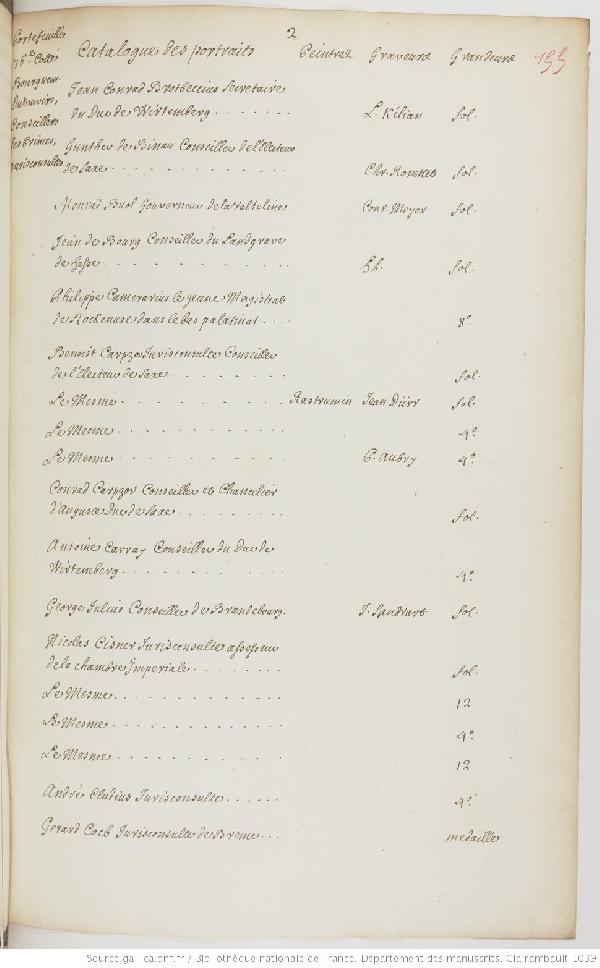 2
Catalogue des portraits Peintres Graveurs Grandeurs 155
Portefeuille
Cotté
Bourguem.
Conseillers
des Princes,
jurisconsultes
Jean Conrad Brotbeccius Secretaire
du Duc de Wirtemberg . . . . . . L. Kilian fol.
Gunther de Binau Conseiller de l'Electeur
de Saxe . . . . . . . . . . . Chr. Romstet fol.
Buol Gouverneur de la Valteline Conr. Meyer fol.
Jean de Bourg Conseiller du Landgrave
de Hesse . . . . . . . . . . fol.
Philippe Camerarius le jeune Magistrat
de dans le bas palatinat . . . . 8°
Benoist Carpzov Jurisconsulte Conseiller
de l'Electeur de Saxe . . . . . . . fol.
Le Mesme . . . . . . . . . . Jean Dürr fol.
Le Mesme . . . . . . . . . . 4°
Le Mesme . . . . . . . . . . P. Aubry 4°
Conrad Carpzov Conseiller et Chancelier
d'Auguste Duc de Saxe . . . . . . . fol.
Antoine Carray Conseiller du Duc de
Wirtemberg . . . . . . . . . . 4°
George Julius Conseiller de Brandebourg. J. Sandrart fol.
Nicolas Cisner Jurisconsulte assesseur
de la chambre Imperiale . . . . . . fol.
Le Mesme . . . . . . . . . . 12
Le Mesme . . . . . . . . . . 4°
Le Mesme . . . . . . . . . . 12
André Cludius Jurisconsulte . . . . . 4°
Gerard Coch Jurisconsulte de Breme . . . medaille
Source gallica.bnf.fr / Bibliothèque nationale de France. Département des manuscrits. Clairambault 1039